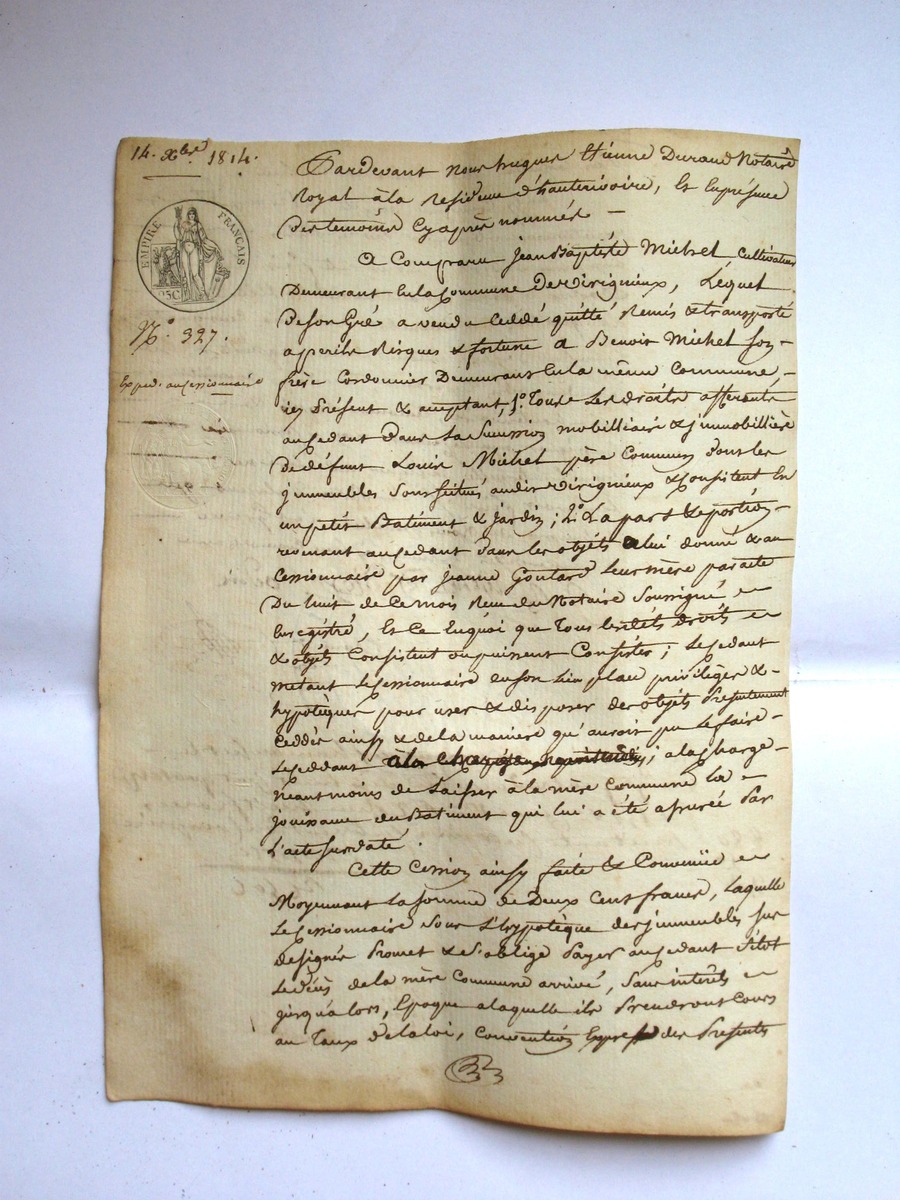 14. Xbre 1814.
EMPIRE FRANÇAIS
25C
N.o 327.
Exped. au cessionnaire
Pardevant nous hugues Etienne Durand Notaire
Royal à la Residence d'hauterivoire, Et En présence
Des temoins Cy après nommés —
A Comparu Jean Baptiste Michel Cultivateur
Demeurant En la Commune De Virignieux, Lequel
De son Gré a vendu Ceddé quitté Remis & transporté
a perils Risques & fortune a Benoit Michel son -
frère Cordonnier Demeurant En la même Commune, -
icy Présent & acceptant, 1.o Tous Les droits afferents
au Cedant Dans La Succession mobilliaire & jmmobillière
De défunt Louis Michel père Commun dont les
jmmeubles sont situés audit Virignieux & Consistent En
un petit Batiment & jardin; 2.o La part & portion -
revenant au Cedant dans les objets a lui donné & au
Cessionnaire par Jeanne Goutard Leur mère par acte
Du huit de Ce mois Reçu du Notaire Soussigné
Enregistré, Et Ce En quoi que Tous lesdits droits
& objets Consistent ou puissent Consister; Le Cedant
metant Le Cessionnaire en son Lieu place privilèges & -
hypotèques pour user & disposer des objets Presentement
Ceddés ainsy & de la maniere qu'auroit pu Le faire -
Le Ceddant à la Charge ; a la Charge -
néantmoins de Laisser à la mère Commune La -
jouissance du Batiment qui lui a été assurée Par
L'acte sus daté.
Cette Cession ainsy faite & Convenüe
Moyennant La somme de Deux Cent francs, Laquelle
Le Cessionnaire sous L'hypotèque des jmmeubles sus
designés Promet & S'oblige Payer au Cedant Sitot
Le décès de la mère Commune arrivé, Sans interêts
jusqu'alors, Epoque a laquelle ils Prendront Cours
au Taux de la loi, Convention Expresse des Presentes